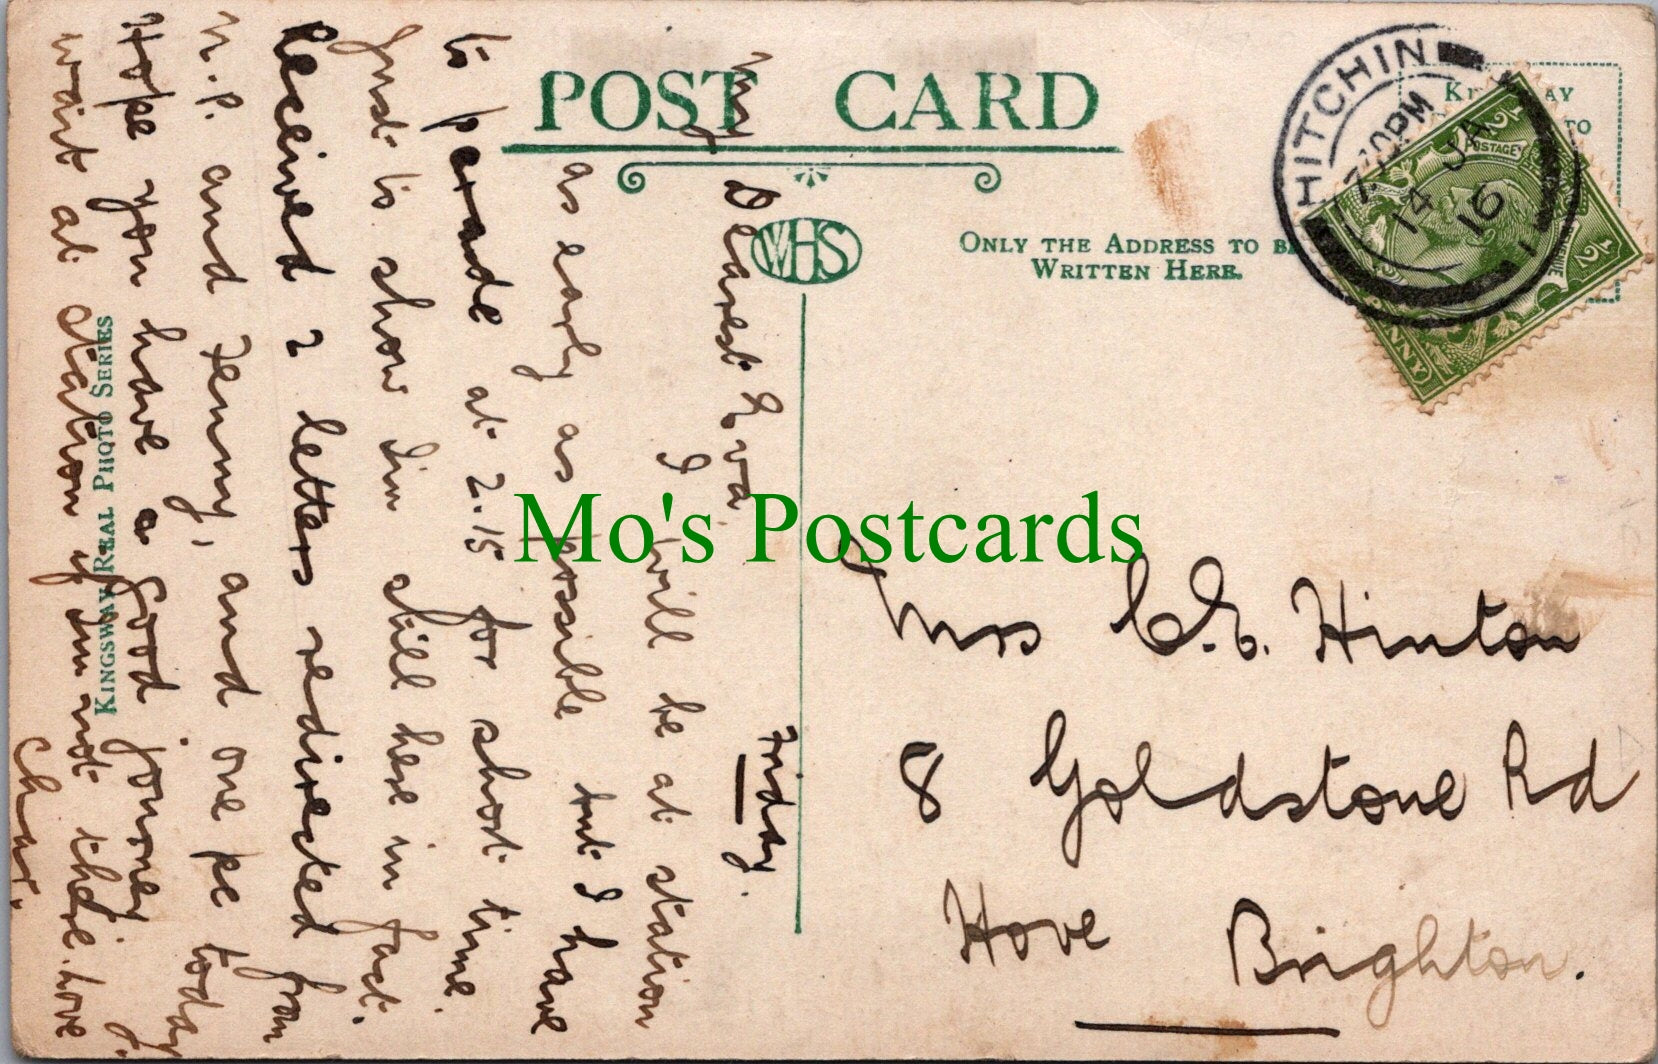 POST CARD
WHS
ONLY THE ADDRESS TO BE
WRITTEN HERE.
HITCHIN
7.30PM
14 JA
16
POSTAGE
PENNY
Friday.
My Dearest Eva
I will be at station
as early as possible but I have
to parade at 2.15 for short time.
Just to show I'm still here in fact.
Received 2 letters redirected from
N.P. and Jenny, and one pc today
Hope you have a good journey
wait at station if I'm not there. love
Chas.
KINGSWAY REAL PHOTO SERIES
Mrs C.E. Hinton
8 Goldstone Rd
Hove
Brighton.
Mo's Postcards